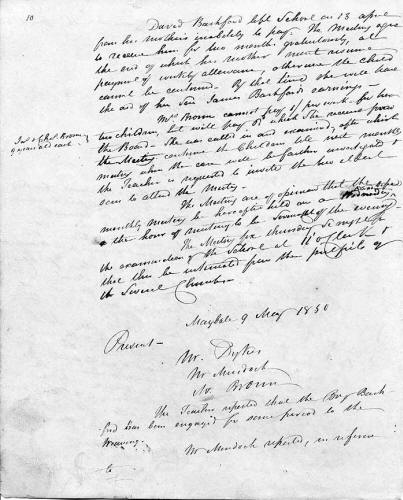 10
David Bashford left School on 13 april
from his mothers inability to pay. The Meeting agree
to receive him for two months gratuitously, at
the end of which his mother must resume
payment of weekly allowance, otherwise the child
cannot be continued. By that time she will have
the aid of her Son James Bashfords earnings.
Mrs Brown cannot pay 2/ per week for her
two children, but will pay of which She receives from
the Board. She was called in and examined, after which
the Meeting continue the Children till next monthly
meeting when the case will be further investigated &
the Teacher is requested to invite the two eldest
sons to attend the Meeting.
The Meeting are of opinion that the
monthly meeting be hereafter held on a Wednesday,
& the hour of meeting to be Seven of the evening
The Meeting fix thursday
the examination of the School at 11 o'Clock &
that this be intimated from the pulpits of
the Several Churches.
Maybole 9 May 1850
Present –
Mr. Dykes
Mr Murdoch
Mr. Brown
The Teacher reported that the Boy Bash
ford has been engaged for some period to the
Weaving.
Mr Murdoch reported, in reference
to